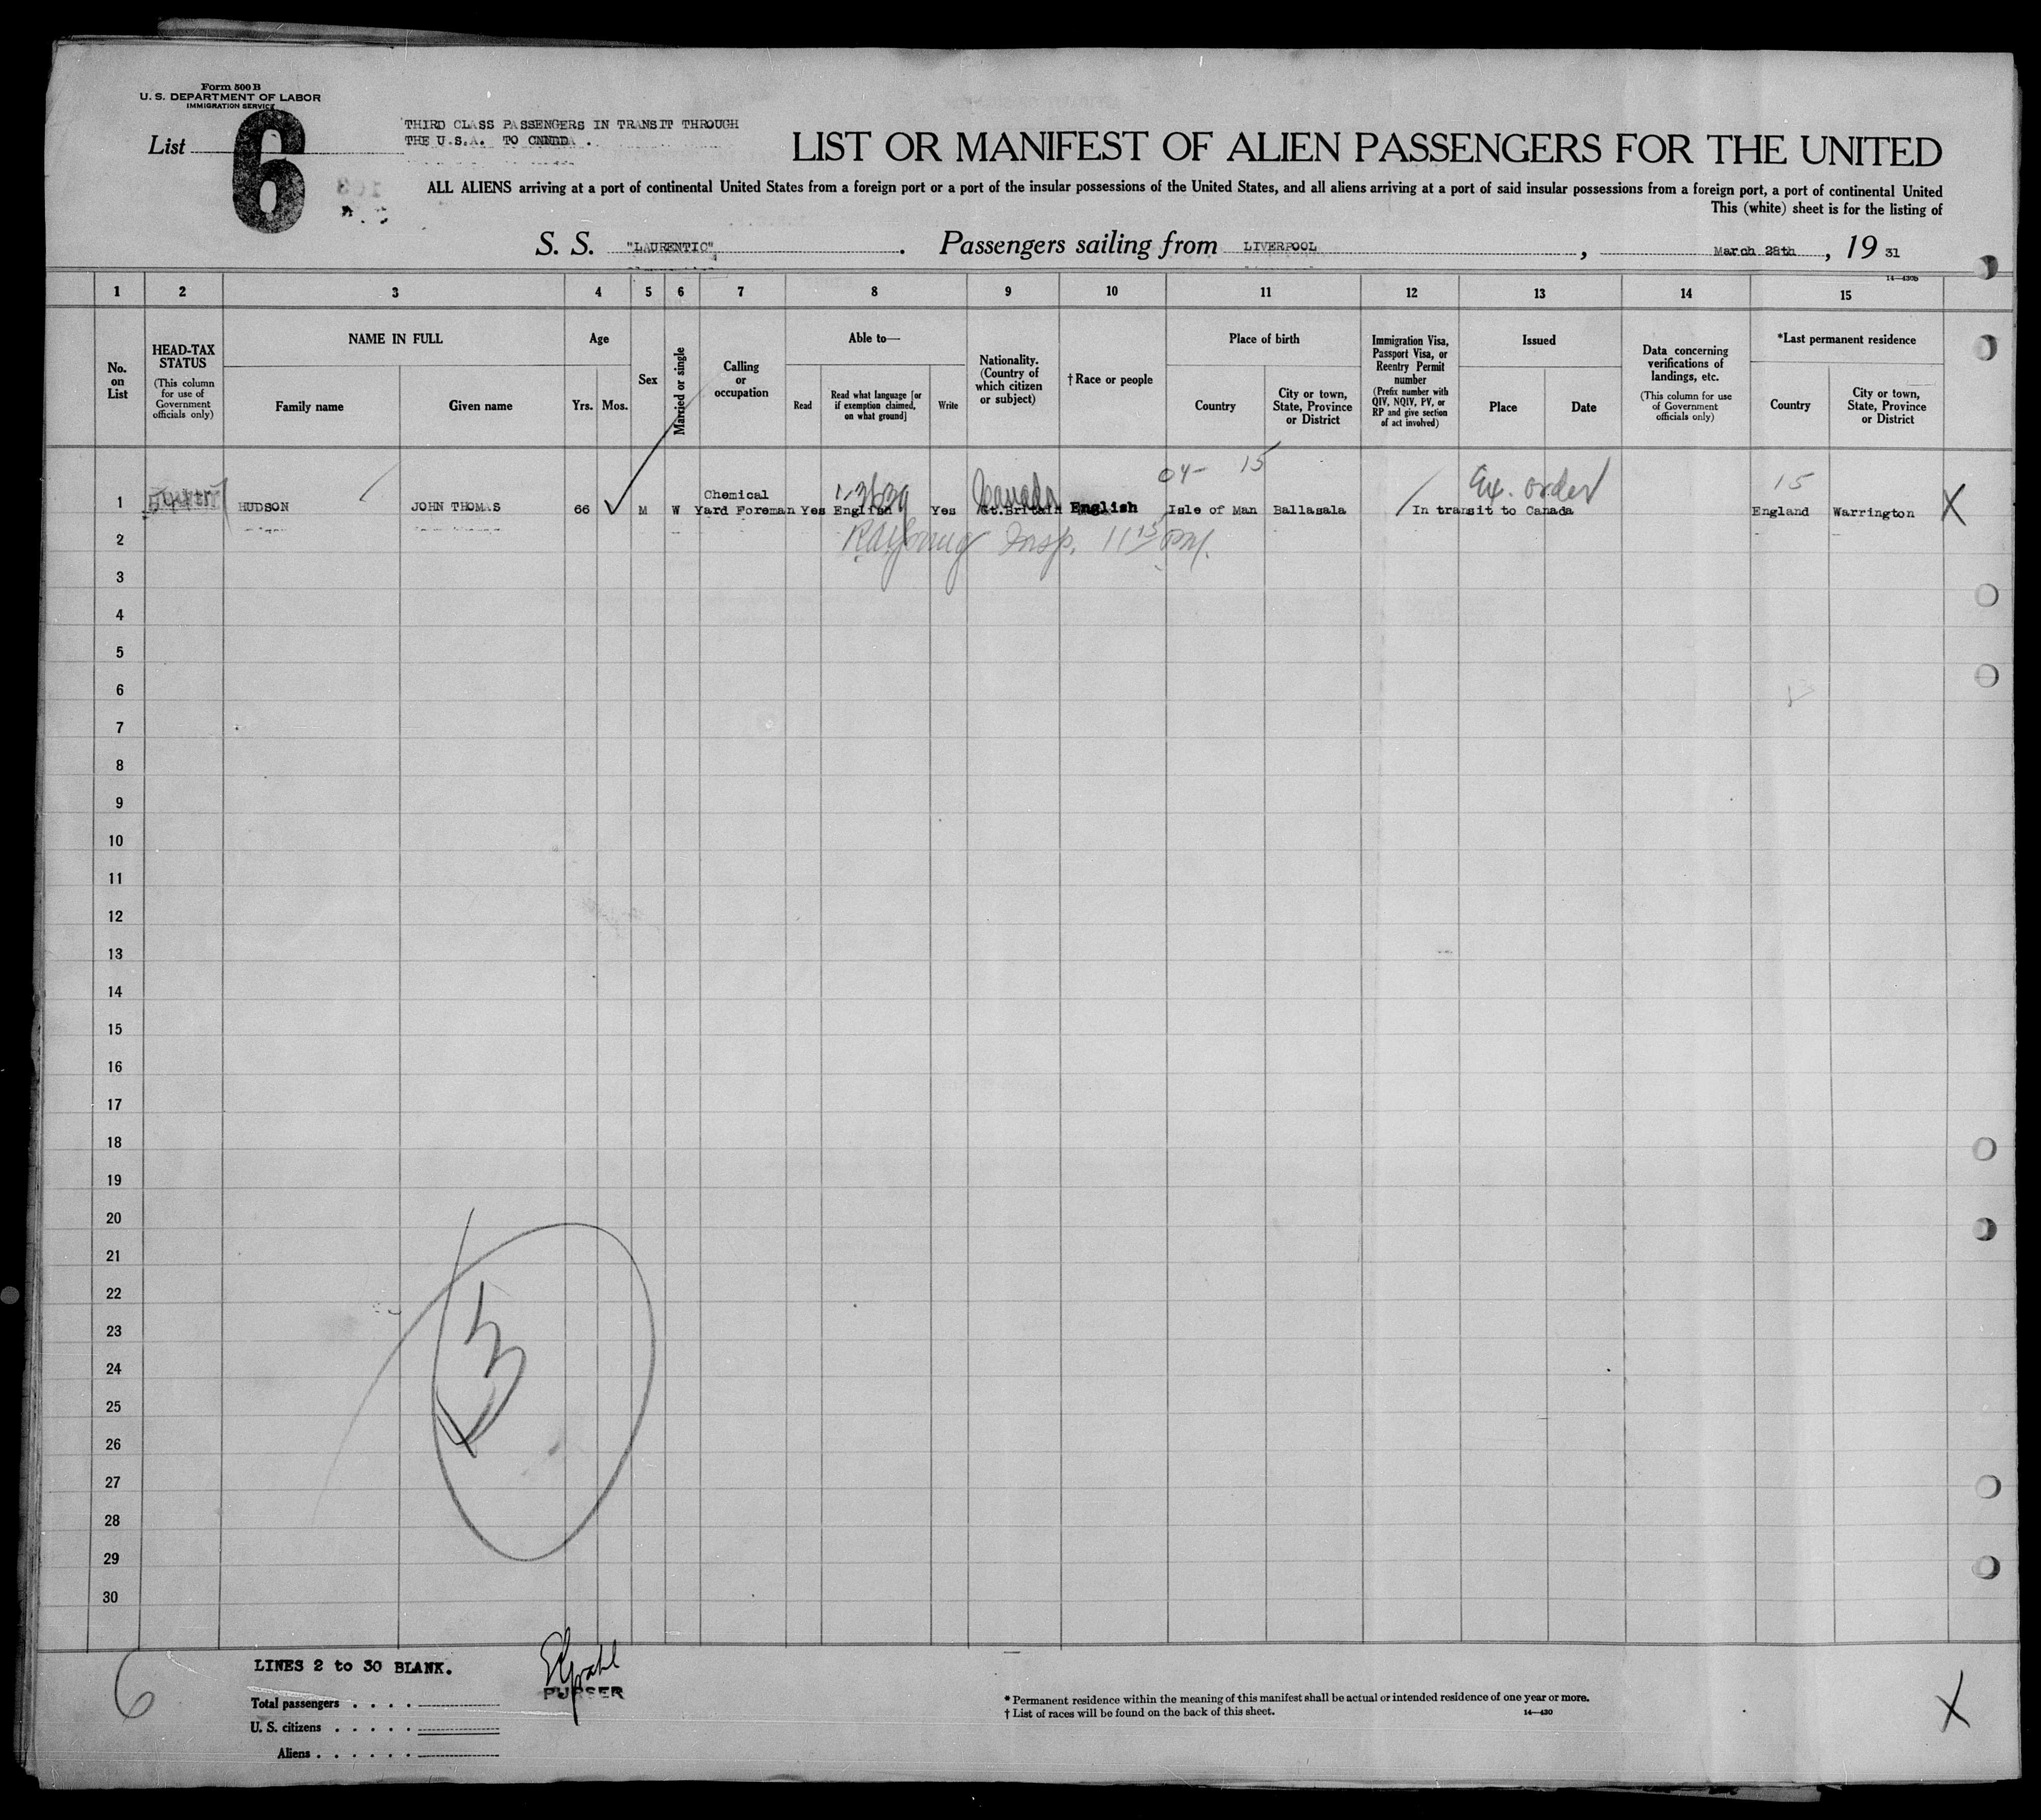 Form 500 B
U. S. DEPARTMENT OF LABOR
IMMIGRATION SERVICE
List 6
THIRD CLASS PASSENGERS IN TRANSIT THROUGH
THE U.S.A. TO CNNDDA .
LIST OR MANIFEST OF ALIEN PASSENGERS FOR THE UNITED
ALL ALIENS arriving at a port of continental United States from a foreign port or a port of the insular possessions of the United States, and all aliens arriving at a port of said insular possessions from a foreign port, a port of continental United
This (white) sheet is for the listing of
S. S. "LAURENTIC" . Passengers sailing from LIVERPOOL , March 28th , 19 31
14—430B
1 2 3 4 5 6 7 8 9 10 11 12 13 14 15
No. on List
HEAD-TAX STATUS
(This column for use of Government officials only)
NAME IN FULL
Family name
Given name
Age
Yrs. Mos.
Sex
Married or single
Calling or occupation
Able to—
Read
Read what language [or if exemption claimed, on what ground]
Write
Nationality. (Country of which citizen or subject)
†Race or people
Place of birth
Country
City or town, State, Province or District
Immigration Visa, Passport Visa, or Reentry Permit number
(Prefix number with QIV, NQIV, PV, or RP and give section of act involved)
Issued
Place
Date
Data concerning verifications of landings, etc.
(This column for use of Government officials only)
*Last permanent residence
Country
City or town, State, Province or District
04- 15 Ex. order 15
Canada
1 HUDSON JOHN THOMAS 66 M W Chemical Yard Foreman Yes English Yes Gt.Britain English Isle of Man Ballasala In transit to Canada England Warrington X
2 Insp. 11 15 PM.
3
4
5
6
7
8
9
10
11
12
13
14
15
16
17
18
19
20
21
22
23
24
25
26
27
28
29
30
6
LINES 2 to 30 BLANK.
PURSER
Total passengers . . . .
U. S. citizens . . . . .
Aliens . . . . . .
* Permanent residence within the meaning of this manifest shall be actual or intended residence of one year or more.
† List of races will be found on the back of this sheet.
14—430
X